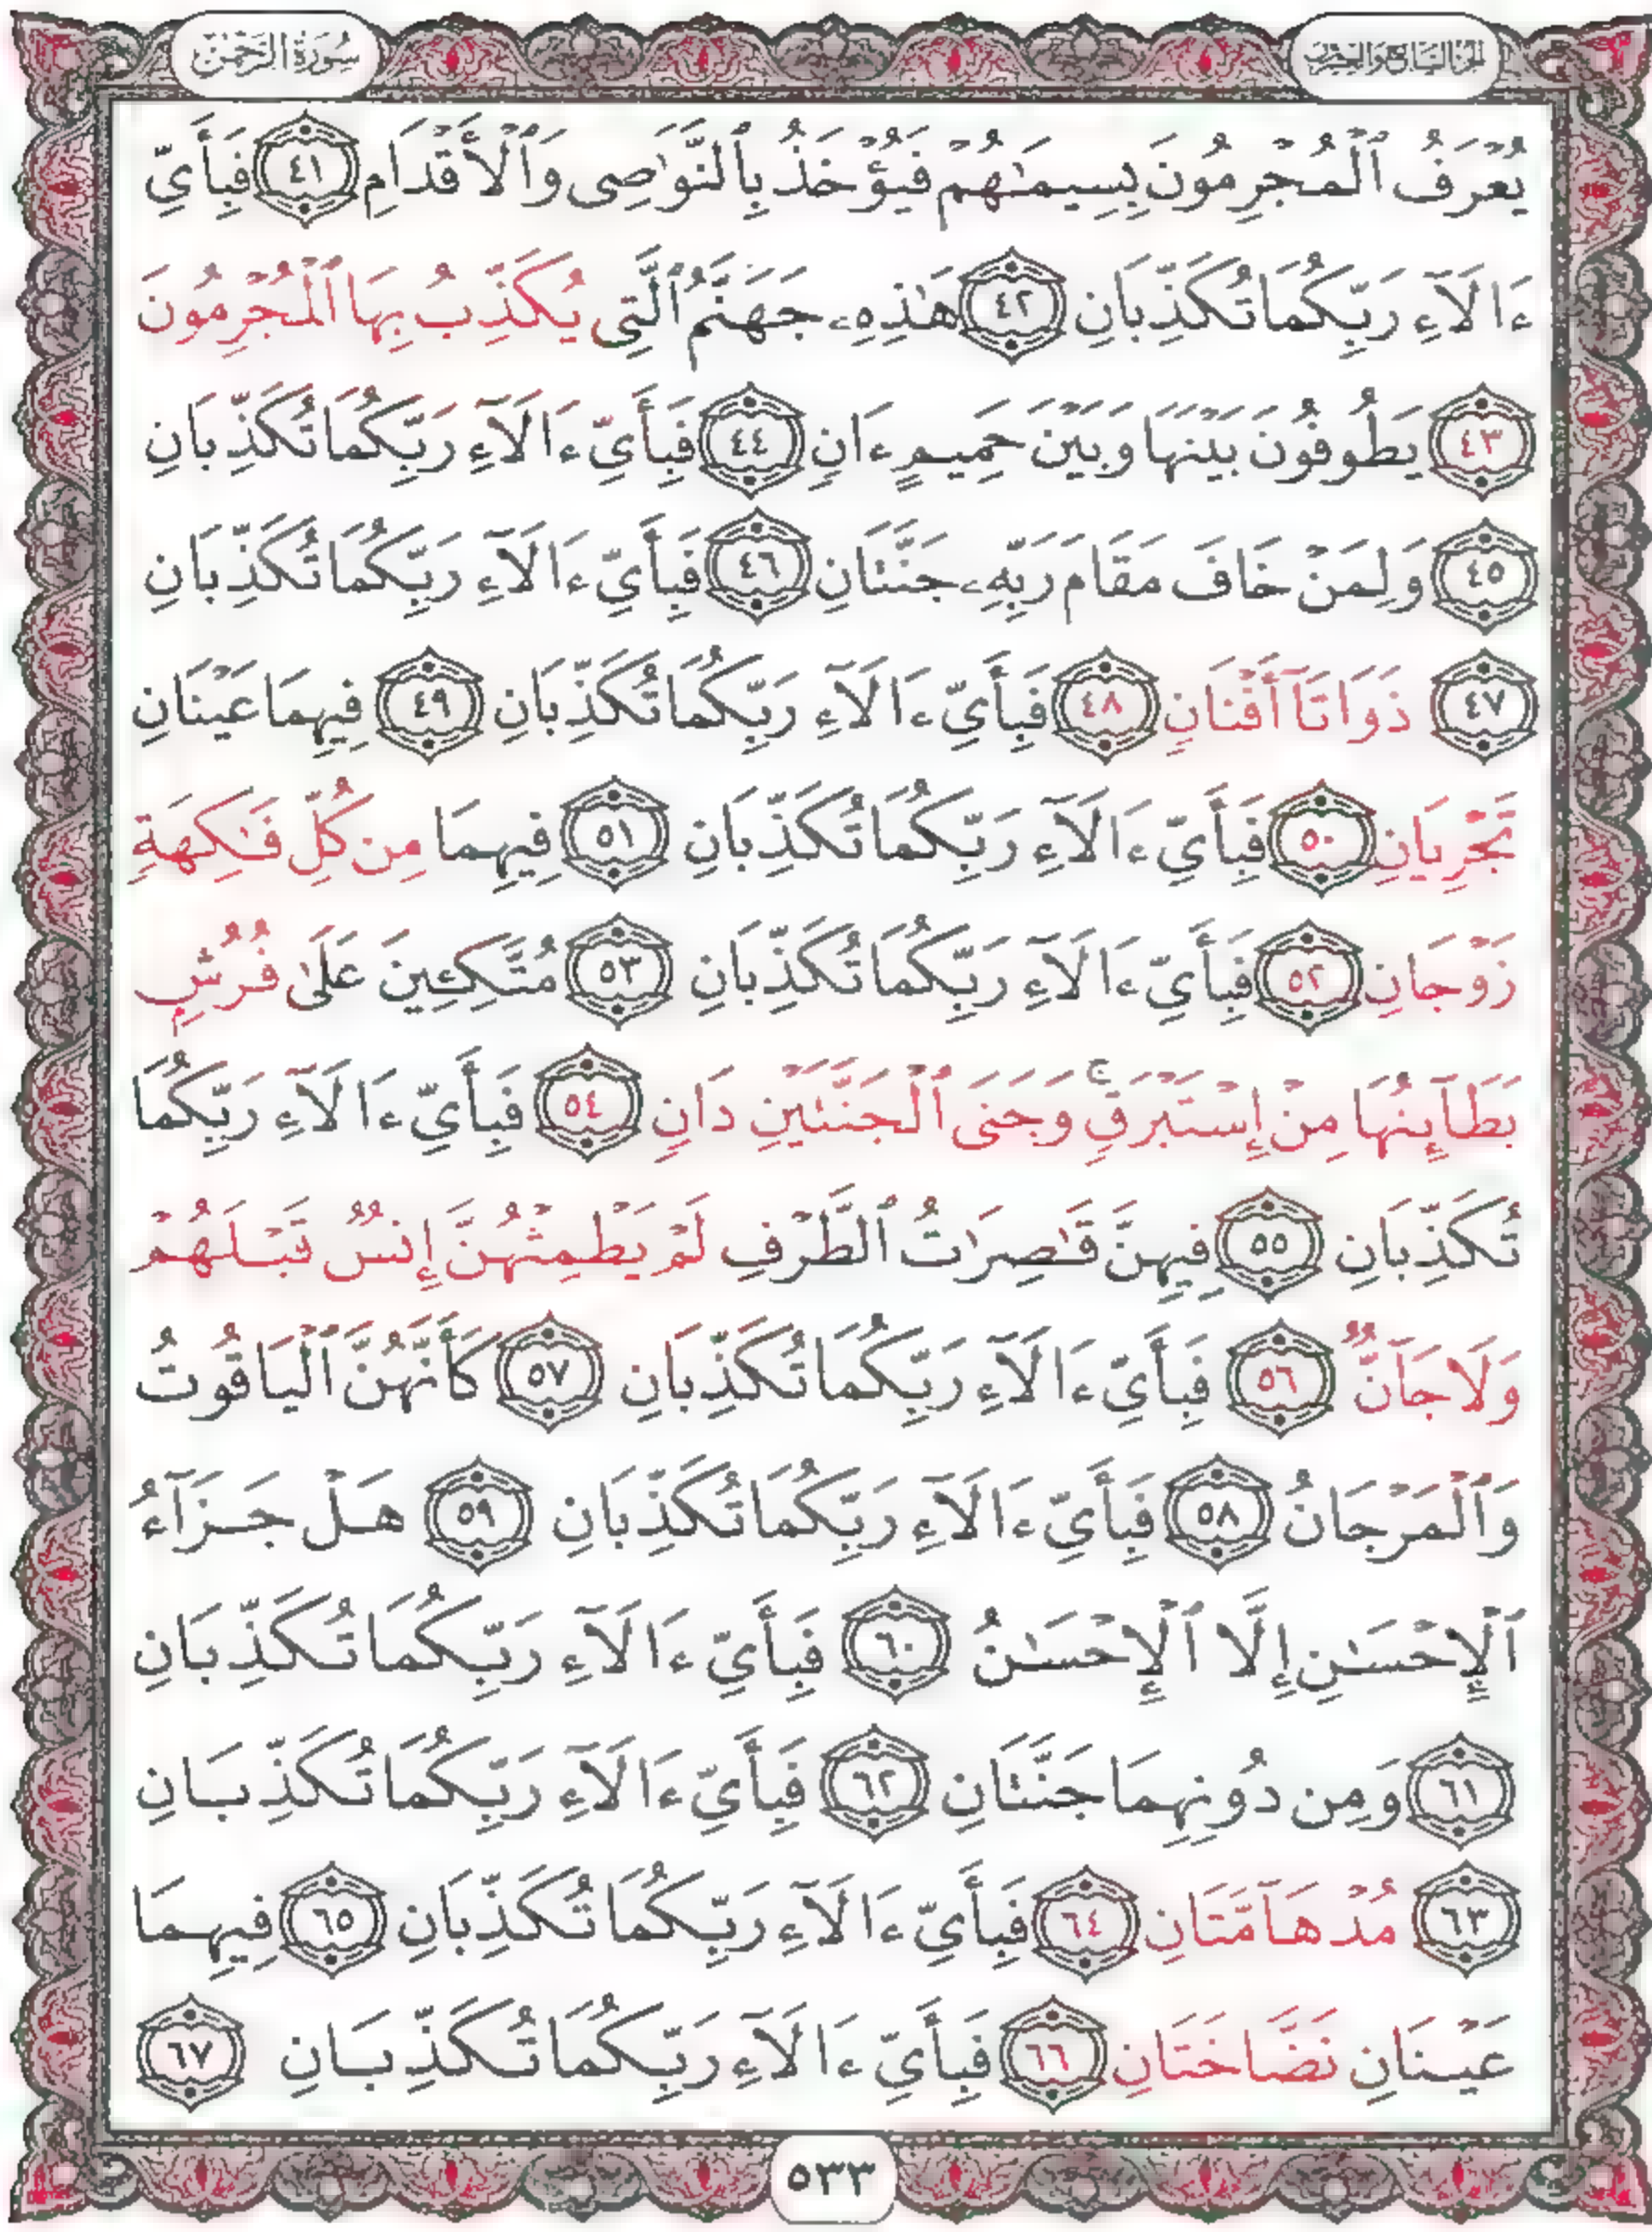 الجزء السابع والعشرون
سُورَةُ الرَّحْمَٰن
يُعْرَفُ ٱلْمُجْرِمُونَ بِسِيمَٰهُمْ فَيُؤْخَذُ بِٱلنَّوَٰصِى وَٱلْأَقْدَامِ ٤١ فَبِأَىِّ
ءَالَآءِ رَبِّكُمَا تُكَذِّبَانِ ٤٢ هَٰذِهِۦ جَهَنَّمُ ٱلَّتِى يُكَذِّبُ بِهَا ٱلْمُجْرِمُونَ
٤٣ يَطُوفُونَ بَيْنَهَا وَبَيْنَ حَمِيمٍ ءَانٍ ٤٤ فَبِأَىِّ ءَالَآءِ رَبِّكُمَا تُكَذِّبَانِ
٤٥ وَلِمَنْ خَافَ مَقَامَ رَبِّهِۦ جَنَّتَانِ ٤٦ فَبِأَىِّ ءَالَآءِ رَبِّكُمَا تُكَذِّبَانِ
٤٧ ذَوَاتَآ أَفْنَانٍ ٤٨ فَبِأَىِّ ءَالَآءِ رَبِّكُمَا تُكَذِّبَانِ ٤٩ فِيهِمَا عَيْنَانِ
تَجْرِيَانِ ٥٠ فَبِأَىِّ ءَالَآءِ رَبِّكُمَا تُكَذِّبَانِ ٥١ فِيهِمَا مِن كُلِّ فَٰكِهَةٍ
زَوْجَانِ ٥٢ فَبِأَىِّ ءَالَآءِ رَبِّكُمَا تُكَذِّبَانِ ٥٣ مُتَّكِـِٔينَ عَلَىٰ فُرُشٍۭ
بَطَآئِنُهَا مِنْ إِسْتَبْرَقٍ ۚ وَجَنَى ٱلْجَنَّتَيْنِ دَانٍ ٥٤ فَبِأَىِّ ءَالَآءِ رَبِّكُمَا
تُكَذِّبَانِ ٥٥ فِيهِنَّ قَٰصِرَٰتُ ٱلطَّرْفِ لَمْ يَطْمِثْهُنَّ إِنسٌ قَبْلَهُمْ
وَلَا جَآنٌّ ٥٦ فَبِأَىِّ ءَالَآءِ رَبِّكُمَا تُكَذِّبَانِ ٥٧ كَأَنَّهُنَّ ٱلْيَاقُوتُ
وَٱلْمَرْجَانُ ٥٨ فَبِأَىِّ ءَالَآءِ رَبِّكُمَا تُكَذِّبَانِ ٥٩ هَلْ جَزَآءُ
ٱلْإِحْسَٰنِ إِلَّا ٱلْإِحْسَٰنُ ٦٠ فَبِأَىِّ ءَالَآءِ رَبِّكُمَا تُكَذِّبَانِ
٦١ وَمِن دُونِهِمَا جَنَّتَانِ ٦٢ فَبِأَىِّ ءَالَآءِ رَبِّكُمَا تُكَذِّبَانِ
٦٣ مُدْهَآمَّتَانِ ٦٤ فَبِأَىِّ ءَالَآءِ رَبِّكُمَا تُكَذِّبَانِ ٦٥ فِيهِمَا
عَيْنَانِ نَضَّاخَتَانِ ٦٦ فَبِأَىِّ ءَالَآءِ رَبِّكُمَا تُكَذِّبَانِ ٦٧
٥٣٣